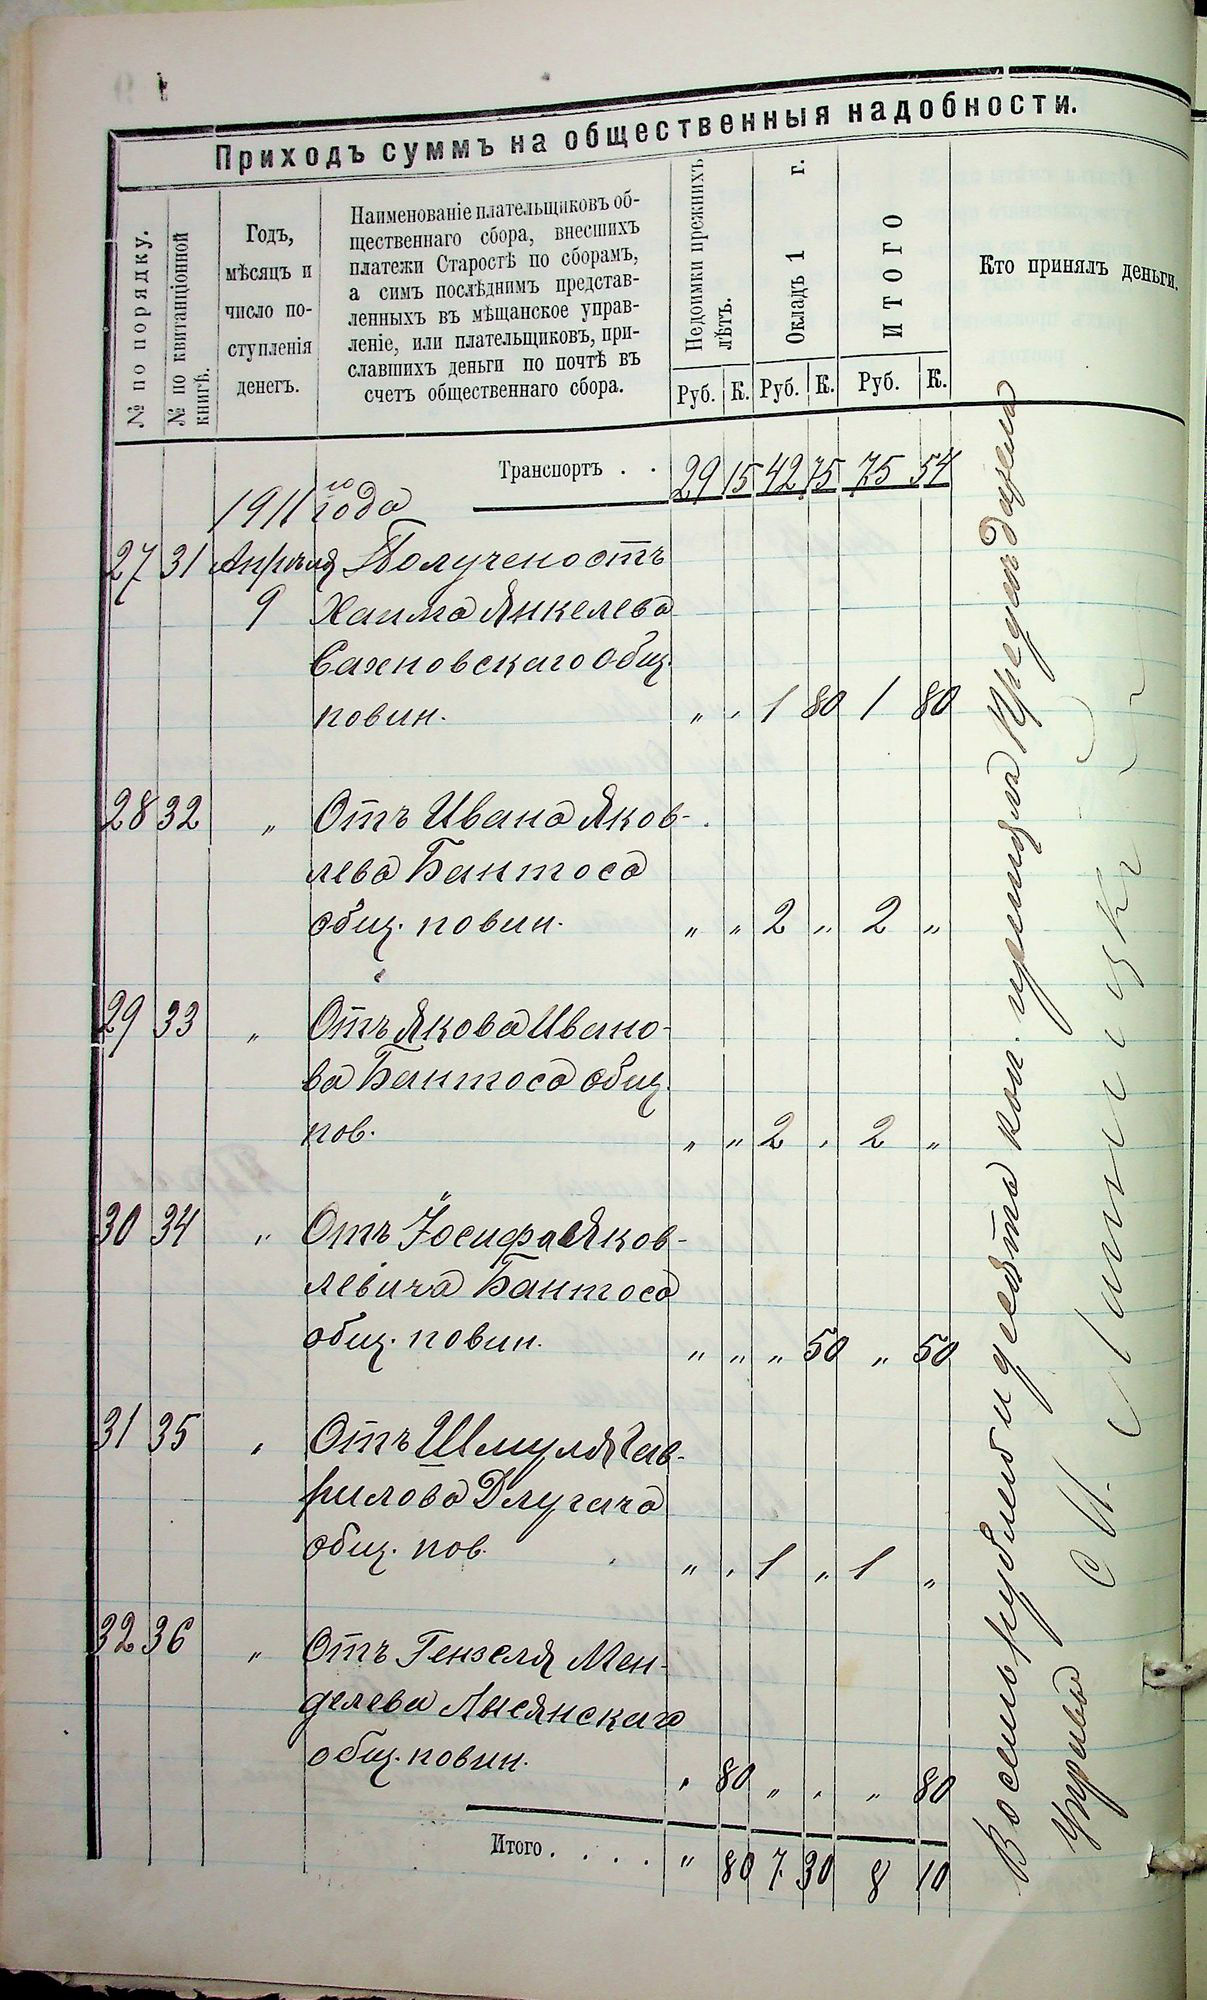 Приходъ суммъ на общественныя надобности.
№ по порядку.
№ по квитанціонной
книгѣ.
Годъ,
мѣсяцъ и
число по-
ступленія
денегъ.
Наименованіе плательщиковъ об-
щественнаго сбора, внесшихъ
платежи Старостѣ по сборамъ,
а симъ послѣднимъ представ-
ленныхъ въ мѣщанское управ-
леніе, или плательщиковъ, при-
славшихъ деньги по почтѣ въ
счетъ общественнаго сбора.
Недоимки прежнихъ
лѣтъ.
Окладъ 1 г.
ИТОГО
Кто принялъ деньги.
Руб. К. Руб. К. Руб. К.
Транспортъ . . 29 15 42 75 75 54
1911 го года
27 31 Апрѣля Получено отъ
9 Хаима Янкелева
Сахновскаго общ.
повин. „ „ 1 80 1 80
28 32 „ Отъ Ивана Яков-
лева Бантоса
общ. повин. „ „ 2 „ 2 „
29 33 „ Отъ Якова Ивано-
ва Бантоса общ.
пов. „ „ 2 „ 2 „
30 34 „ Отъ Іосифа Яков-
левича Бантоса
общ. повин. „ „ „ 50 „ 50
31 35 „ Отъ Шмуля Гав-
рилова Длугача
общ. пов. „ „ 1 „ 1 „
32 36 „ Отъ Гензеля Мен-
делева Лысянскаго
общ. повин. „ 80 „ „ „ 80
Итого . . . . „ 80 7 30 8 10
Восемь рублей и десять коп. принялъ Предсѣдатель
Управы